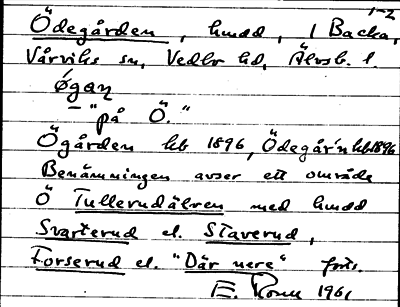 1-2
Ödegården, hmdd, 1 Backa,
Vårviks sn, Vedbo hd, Älvsb. l.
øgaṇ
— "på Ö."
Ögården kb 1896, Ödegår'n kb 1896
Benämningen avser ett område
Ö Tullerudälven med hmdd
Svarterud el. Staverud,
Forserud el. "Där nere" forts.
E. 1961